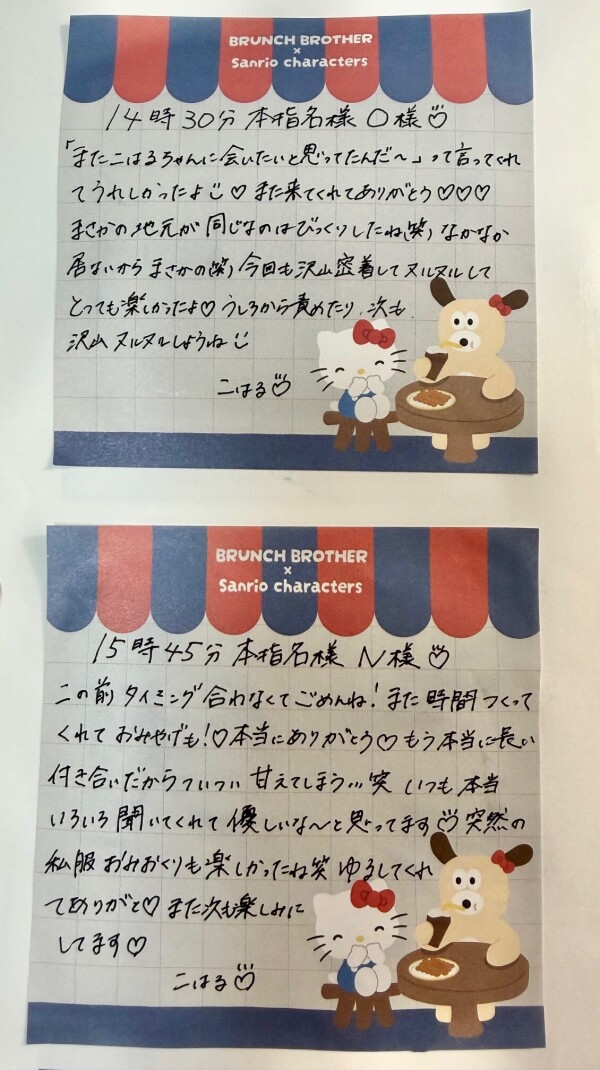 BRUNCH BROTHER
×
Sanrio characters
14時30分 本指名様 O様♡
「またこはるちゃんに会いたいと思ってたんだ〜」って言ってくれ
てうれしかったよ♡また来てくれてありがとう♡♡♡
まさかの地元が同じなのはびっくりしたね(笑)なかなか
居ないからまさかの(笑)今回も沢山密着してヌルヌルして
とっても楽しかったよ♡うしろから責めたり、次も
沢山ヌルヌルしようね
こはる♡
BRUNCH BROTHER
×
Sanrio characters
15時45分 本指名様 N様♡
この前タイミング合わなくてごめんね!また時間つくって
くれておみやげも!♡本当にありがとう♡もう本当に長い
付き合いだからついつい甘えてしまう…笑 いつも本当
いろいろ聞いてくれて優しいな〜と思ってます♡突然の
私服おみおくりも楽しかったね笑 ゆるしてくれ
てありがと♡また次も楽しみに
してます♡
こはる♡